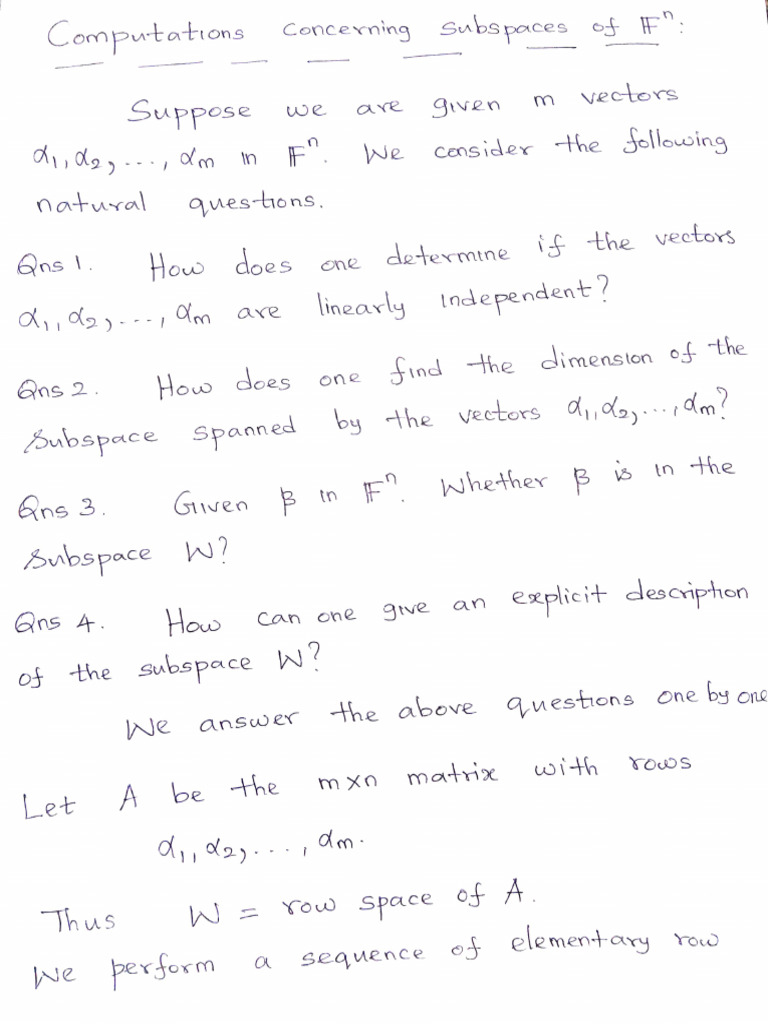 Computations Concerning Subspaces of 𝔽ⁿ:
Suppose we are given m vectors
α₁, α₂, ..., αm in 𝔽ⁿ. We consider the following
natural questions.
Qns 1. How does one determine if the vectors
α₁, α₂, ..., αm are linearly independent?
Qns 2. How does one find the dimension of the
subspace spanned by the vectors α₁, α₂, ..., αm?
Qns 3. Given β in 𝔽ⁿ. Whether β is in the
subspace W?
Qns 4. How can one give an explicit description
of the subspace W?
We answer the above questions one by one
Let A be the m×n matrix with rows
α₁, α₂, ..., αm.
Thus W = row space of A.
We perform a sequence of elementary row